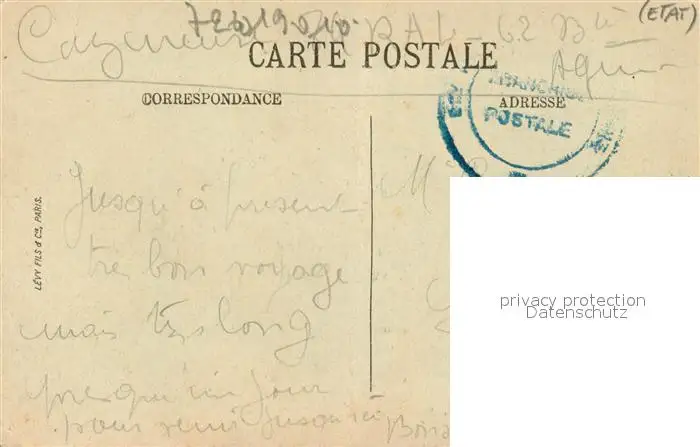 72619010. (ETAT)
RAL - 62 Bie
CARTE POSTALE
CORRESPONDANCE
ADRESSE
FRANCHISE
POSTALE
LÉVY FILS & Cie, PARIS.
Jusqu'à présent
très bon voyage
mais très long
presqu'un jour
pour venir jusqu'ici
privacy protection
Datenschutz